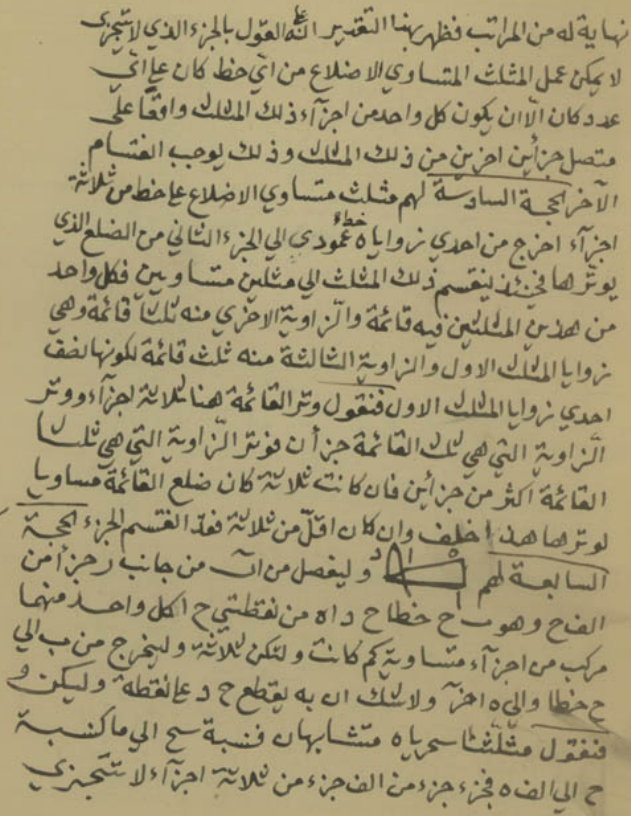 نهاية له من المراتب فظهر بهذا التقدير انه على القول بالجزء الذي لا يتجزى
لا يمكن عمل المثلث المتساوي الاضلاع من اي خط كان على اي
عدد كان الا ان يكون كل واحد من اجزآء ذلك المثلث واقعا على
متصل جزأين اخرين من ذلك المثلث وذلك يوجب انقسام
الآخر الحجة السادسة لهم مثلث متساوي الاضلاع على خط من ثلاثة
اجزآء اخرج من احدي زواياه خط عمودي الي الجزء الثاني من الضلع الذي
يوترها فحينئذ ينقسم ذلك المثلث الي مثلين متساويين فكل واحد
من هذين المثلثين فيه قائمة والزاوية الاخري منه ثلثا قائمة وهي
زوايا المثلث الاول والزاوية الثالثة منه ثلث قائمة لكونها نصف
احدي زوايا المثلث الاول فنقول وتر القائمة هنا ثلاثة اجزآء ووتر
الزاوية التي هي ثلث القائمة جزأن فوتر الزاوية التي هي ثلثا
القائمة اكثر من جزأين فان كانت ثلاثة كان ضلع القائمة مساويا
لوترها هذا خلف وان كان اقل من ثلاثة فقد انقسم الجزء الحجة
السابعة لهم وليفصل من ا من جانب جزأ من
الف ح وهو ح خطا ح د ا ه من نقطتي ح ا كل واحد منهما
مركب من اجزآء متساوية كم كانت ولتكن ثلاثة وليخرج من ب الي
ح خطا والي ه اخر ولا شك ان به يقطع ح د على نقطة وليكن و
فنقول مثلثا متشابهان فنسبة الي كنسبة
ح الي الف ه فجزء جزء من الف جزء من ثلاثة اجزآء لا تتجزي